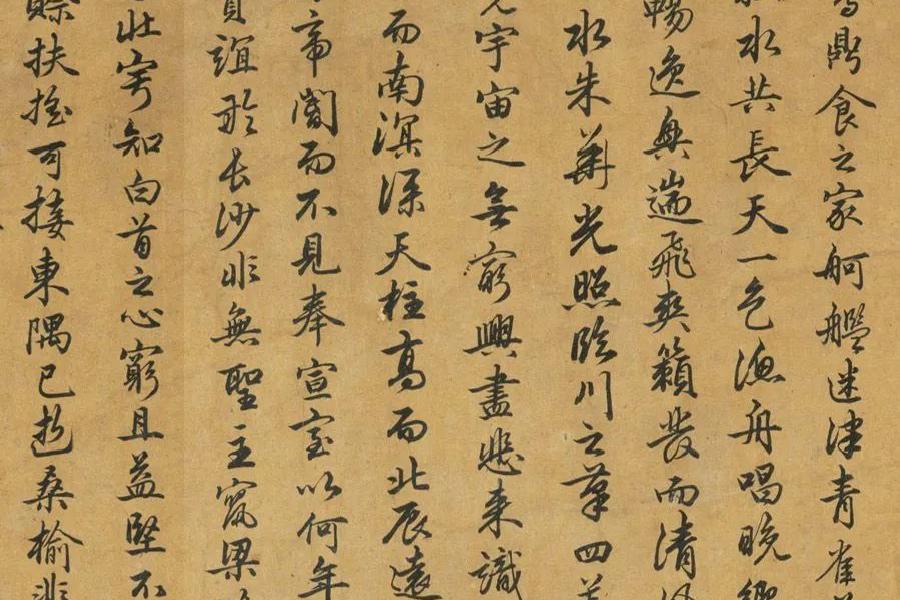 鼎食之家舸艦迷津青雀
水共長天一色漁舟唱晚響
暢逸興遄飛爽籟發而清風
水朱華光照臨川之筆四美
宇宙之無窮興盡悲來識
而南溟深天柱高而北辰遠
帝閽而不見奉宣室以何年
賈誼於長沙非無聖主竄梁
壯寧知白首之心窮且益堅不
賒扶搖可接東隅已逝桑榆非